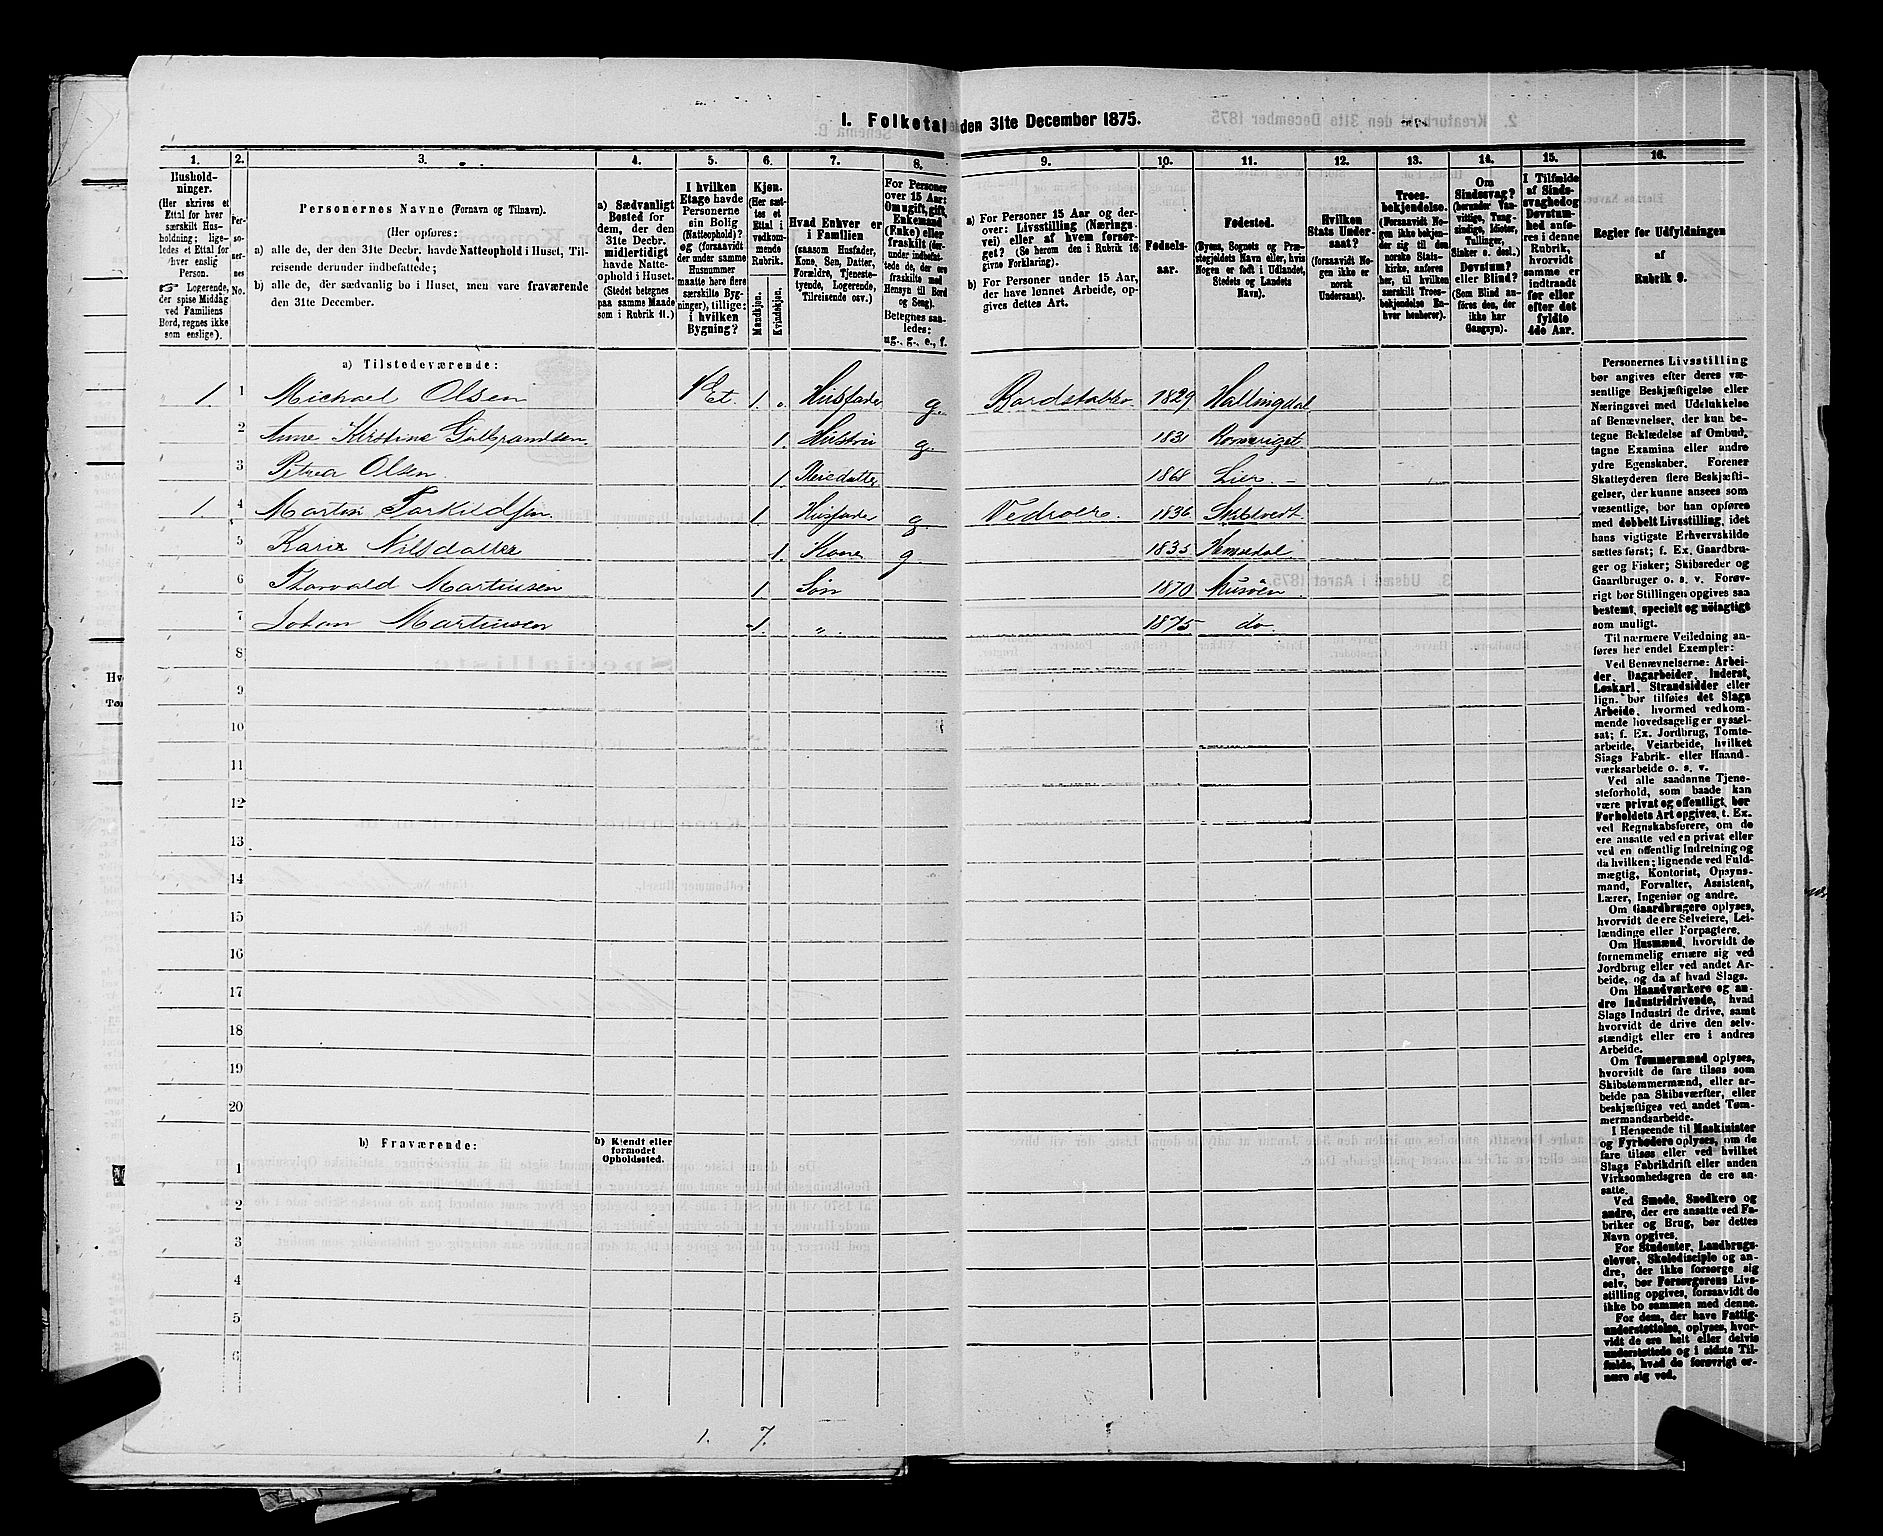 I. Folketal den 31te December 1875.
1.
2.
3.
4.
5.
6.
7.
8.
9.
10.
11.
12.
13.
14.
15.
16.
Husholdninger.
(Her skrives et Ettal for hver særskilt Husholdning; ligeledes et Ettal for hver enslig Person.
☞ Logerende, der spise Middag ved Familiens Bord, regnes ikke som enslige).
Personernes No.
Personernes Navne (Fornavn og Tilnavn).
(Her opføres:
a) alle de, der den 31te Decbr. havde Natteophold i Huset, Tilreisende derunder indbefattede;
b) alle de, der sædvanlig bo i Huset, men vare fraværende den 31te December.
a) Sædvanligt Bosted for dem, der den 31te Decbr. midlertidigt havde Natteophold i Huset. (Stedet betegnes paa samme Maade som i Rubrik 11.)
I hvilken Etage havde Personerne sin Bolig (Natteophold)? og (forsaavidt der under samme Husnummer maatte høre flere særskilte Bygninger), tillige: i hvilken Bygning?
Kjøn.
(Her sættes et Ettal i vedkommende Rubrik.
Mandkjøn.
Kvindekjøn.
Hvad Enhver er i Familien
(saasom Husfader, Kone, Søn, Datter, Forældre, Tjenestetyende, Logerende, Tilreisende osv.)
For Personer over 15 Aar: Om ugift, gift, Enkemand (Enke) eller fraskilt (derunder indbefattede de, der ere fraskilte med Hensyn til Bord og Seng).
Betegnes saaledes:
ug., g., e., f.
a) For Personer 15 Aar og derover: Livsstilling (Næringsvei) eller af hvem forsørget? (Se herom den i Rubrik 16 givne Forklaring).
b) For Personer under 15 Aar, der have lønnet Arbeide, opgives dettes Art.
Fødselsaar.
Fødested.
(Byens, Sognets og Præstegjeldets Navn eller, hvis Nogen er født i Udlandet, Stedets og Landets Navn).
Hvilken Stats Undersaat?
(forsaavidt Nogen ikke er norsk Undersaat).
Troesbekjendelse.
(Forsaavidt Nogen ikke bekjender sig til den norske Statskirke, anføres her, til hvilken særskilt Troesbekjendelse Enhver henhører).
Om Sindssvag? (herunder Vanvittige, Tungsindige, Idioter, Tullinger, Sinker o. desl.). Døvstum? eller Blind? (Som Blind anføres den, der ikke har Gangsyn).
I Tilfælde af Sindssvaghed og Døvstumhed anføres i denne Rubrik, hvorvidt samme er indtraadt før eller efter det fyldte 4de Aar.
Regler for Udfyldningen
af
Rubrik 9.
a) Tilstedeværende:
1. 1 Michael Olsen 1 Et. 1. Husfader g. 1829 Hallingdal
2 Anne Kirstine Gulbrandsen 1. Hustru g. 1831 Romeriget
3 Petrea Olsen 1. Pleiedatter 1868 Lier
1. 4 Martin Torkildsen 1. Husfader g. 1836
5 Kari Nilsdatter 1. Kone g. 1835 Hemsedal
6 Thorvald Martinsen 1 Søn 1870
7 Johan Martinsen 1. „ 1875 do.
8
9
10
11
12
13
14
15
16
17
18
19
20
b) Fraværende:
b) Kjendt eller formodet Opholdssted.
1
2
3
4
5
6
1. 7.
Personernes Livsstilling bør angives efter deres væsentlige Beskjæftigelse eller Næringsvei med Udelukkelse af Benævnelser, der kun betegne Beklædelse af Ombud, tagne Examina eller andre ydre Egenskaber. Forener Skatteyderen flere Beskjæftigelser, der kunne ansees som væsentlige, bør han opføres med dobbelt Livsstilling, idet hans vigtigste Erhvervskilde sættes først; f. Ex. Gaardbruger og Fisker; Skibsreder og Gaardbruger o. s. v. Forøvrigt bør Stillingen opgives saa bestemt, specielt og nöiagtigt som muligt.
Til nærmere Veiledning anføres her endel Exempler:
Ved Benævnelserne: Arbeider, Dagarbeider, Inderst, Løskarl, Strandsidder eller lign. bør tilføies det Slags Arbeide, hvormed vedkommende hovedsagelig er sysselsat; f. Ex. Jordbrug, Tomtearbeide, Veiarbeide, hvilket Slags Fabrik- eller Haandværksarbeide o. s. v.
Ved alle saadanne Tjenesteforhold, som baade kan være privat og offentligt, bør Forholdets Art opgives, t. Ex. ved Regnskabsførere, om de ere ansatte ved en privat eller ved en offentlig Indretning og da hvilken; lignende ved Fuldmægtig, Kontorist, Opsynsmand, Forvalter, Assistent, Lærer, Ingeniør og andre.
Om Gaardbrugere oplyses, hvorvidt de ere Selveiere, Leilændinge eller Forpagtere.
Om Husmænd, hvorvidt de fornemmelig ernære sig ved Jordbrug eller ved andet Arbeide, og da af hvad Slags.
Om Haandværkere og andre Industridrivende, hvad Slags Industri de drive, samt hvorvidt de drive den selvstændigt eller ere i andres Arbeide.
Om Tømmermænd oplyses, hvorvidt de fare tilsøs som Skibstømmermænd, eller arbeide paa Skibsværfter, eller beskjæftiges ved andet Tømmermandsarbeide.
I Henseende til Maskinister og Fyrbødere oplyses, om de fare tilsøs eller ved hvilket Slags Fabrikdrift eller anden Virksomhedsgren de ere ansatte.
Ved Smede, Snedkere og andre, der ere ansatte ved Fabriker og Brug, bør dettes Navn opgives.
For Studenter, Landbrugselever, Skoledisciple og andre, der ikke forsørge sig selv, bør Forsørgerens Livsstilling opgives, forsaavidt de ikke bo sammen med denne.
For dem, der have Fattigunderstøttelse, oplyses, hvorvidt de ere helt eller delvis understøttede og i sidste Tilfælde, hvad de forøvrigt ernære sig ved.